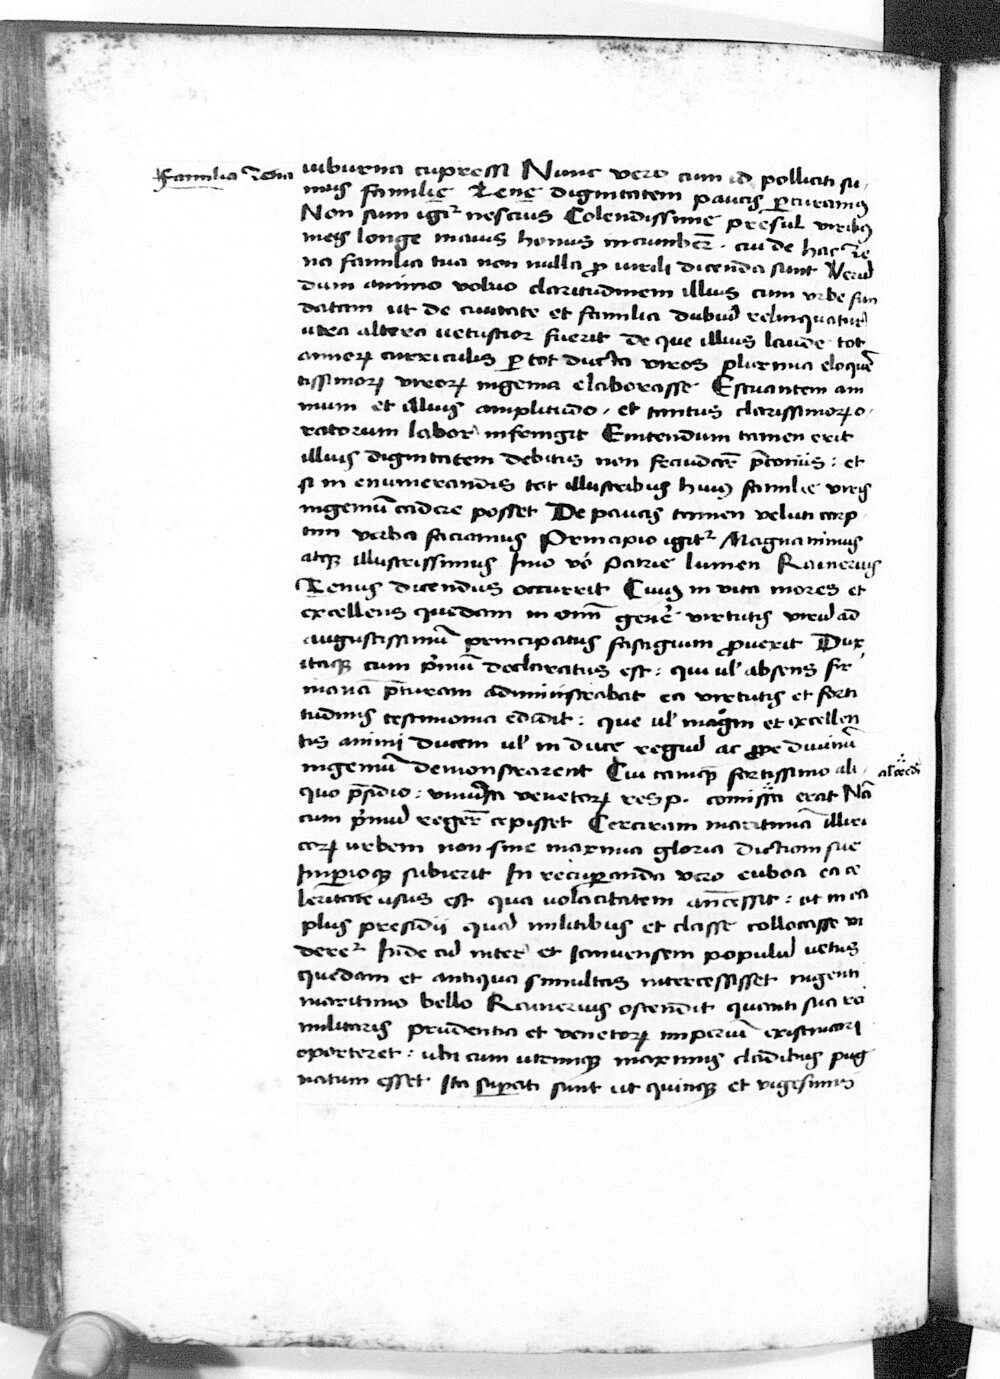 Familia Zena
uiburna cupressi Nunc vero cum id polliciti su,
mus familie Zene dignitatem paucis ꝑcuramꝰ
Non sum igiᷣ nescius Colendissime presul viribꝰ
meis longe maius honus incumberē. cū de hac Ze
na familia tua non nulla ꝓ uirili dicenda sunt Verū
dum animo voluo claritudinem illius cum vrbe fun
datam ut de ciuitate et familia dubiū relinquatur
utra altera uetustior fuerit de que illius laude tot
annorꝝ curriculis ꝑ tot ducta viros plurima eloquē
tissimorꝝ virorꝝ ingenia elaborasse Estuantem ani
mum et illius amplitudo, et tantus clarissimorꝝ o,
ratorum labor infringit Enitendum tamen erit
illius dignitatem debitis non fraudarē p̄coniis: et
si in enumerandis tot illustribus huiꝰ familie viris
ingeniū cadere posset De paucis tamen veluti carp
tim verba faciamus Principio igitᷣ Magnanimus
atqꝫ illustrissimus Imo vō patrie lumen Rainerius
Zenus dicendus occurrit Cuiꝰ in vita mores et
excellens quedam in omī genē virtutis virū ad
augustissimū principatus fastigium ꝓuexit Dux
itaqꝫ cum p̄mū declaratus est: qui ul absens fir
manā p̄turam administrabat ea virtutis et forti
tudinis testimonia edidit: que ul magnī et excellen
tis animi ducem ul in duce regiū ac ꝓpe diuinū
ingeniū demonstrarent Cui tamqꝫ fortissimo ali,
quo p̄sidio: uniuersa venetorꝝ resp. comissa erat Nā
cum p̄mū regerē cepisset Corciram maritimā illiri
corꝝ urbem non sine maxima gloria dictioni sue
Imperioqꝫ subierit In recuꝑanda vero euboa ea ce
leritate usus est qua uolacitatem antecessit: ut in ea
plus presidii quā militibus et classe collocasse vi
dereᷣ Inde cū inter et Ianuensem populū uetus
quedam et antiqua simultas intercessisset ingenti
maritimo bello Rainerius ostendit quanti sua rei
militaris prudentia et venetorꝝ imperiū existimari
oporteret: ubi cum utrimqꝫ maximis cladibus pug
natum esset Ita suꝑati sunt ut quinqꝫ et vigesimus